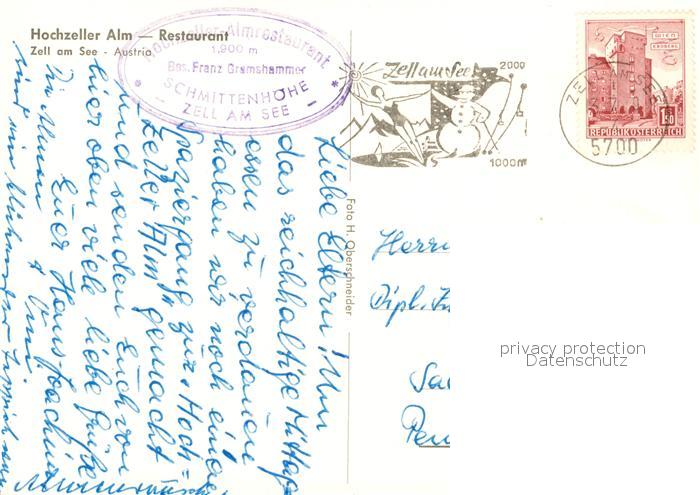 Hochzeller Alm — Restaurant
Zell am See - Austria
Hochzeller-Almrestaurant
1.900 m
Bes. Franz Gramshammer
SCHMITTENHÖHE
- ZELL AM SEE -
Zell am See
2000
1000m
WIEN
ERDBERG
1.50
REPUBLIK ÖSTERREICH
ZELL AM SEE
5700
Foto H. Oberschneider
Liebe Eltern! Um
das reichhaltige Mittag
essen zu verdauen
haben wir noch einen
Spaziergang zur „Hoch=
Zeller Alm" gemacht
und senden Euch von
hier oben viele liebe Grüße
Euer Hans Joachim
Herrn
Dipl. In
privacy protection
Datenschutz